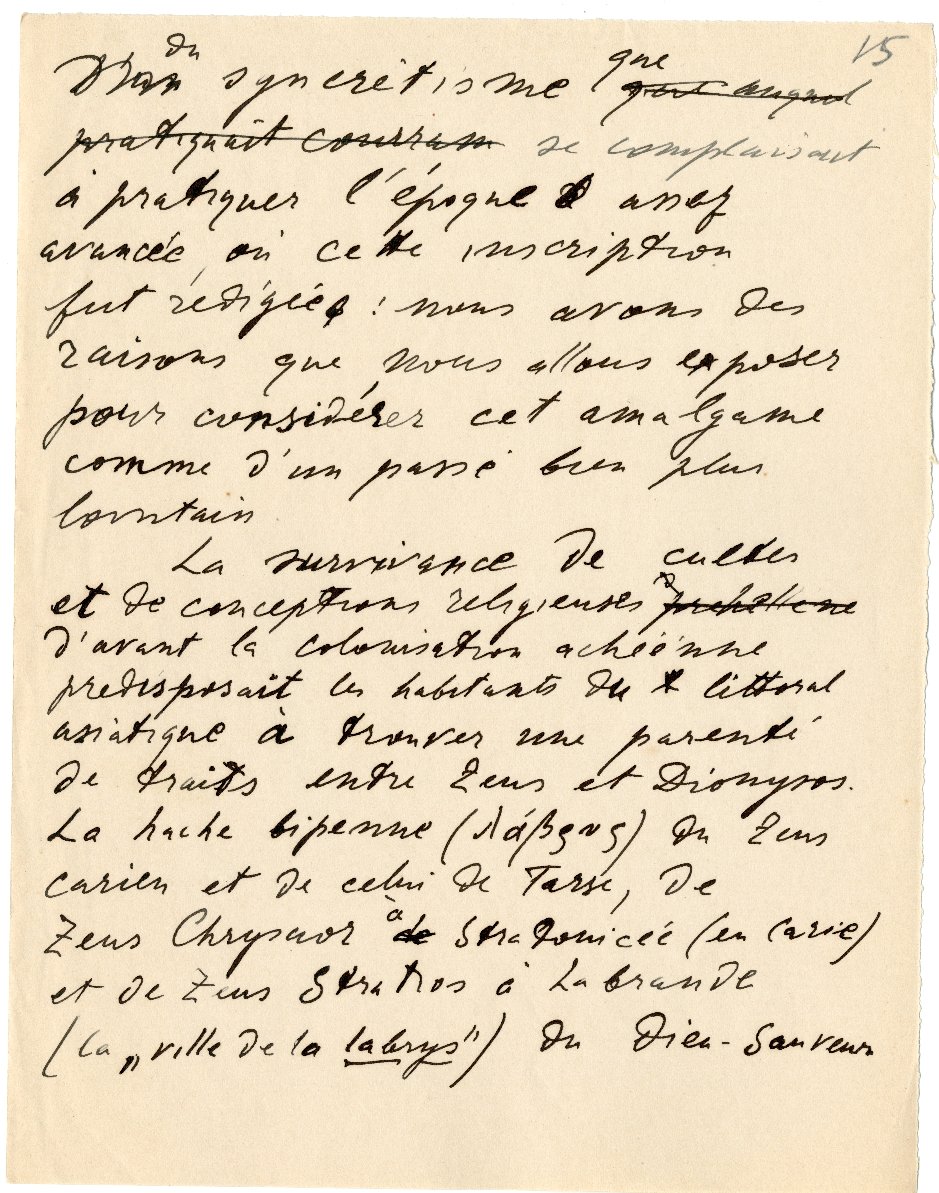 15
du
syncrétisme que
pratiquait courram se complaisait
à pratiquer l'époque assez
avancée, où cette inscription
fut rédigée : nous avons des
raisons que nous allons exposer
pour considérer cet amalgame
comme d'un passé bien plus
lointain
La survivance de cultes
et de conceptions religieuses préhellène
d'avant la colonisation achéénne
predisposait les habitants du littoral
asiatique à trouver une parenté
de traits entre Zeus et Dionysos.
La hache bipenne (λάβρυς) du Zeus
carien et de celui de Tarse, de
Zeus Chrysaor à de Stratonicée (en Carie)
et de Zeus Stratios à Labrande
(la „ville de la labrys") du Dieu-Sauveur